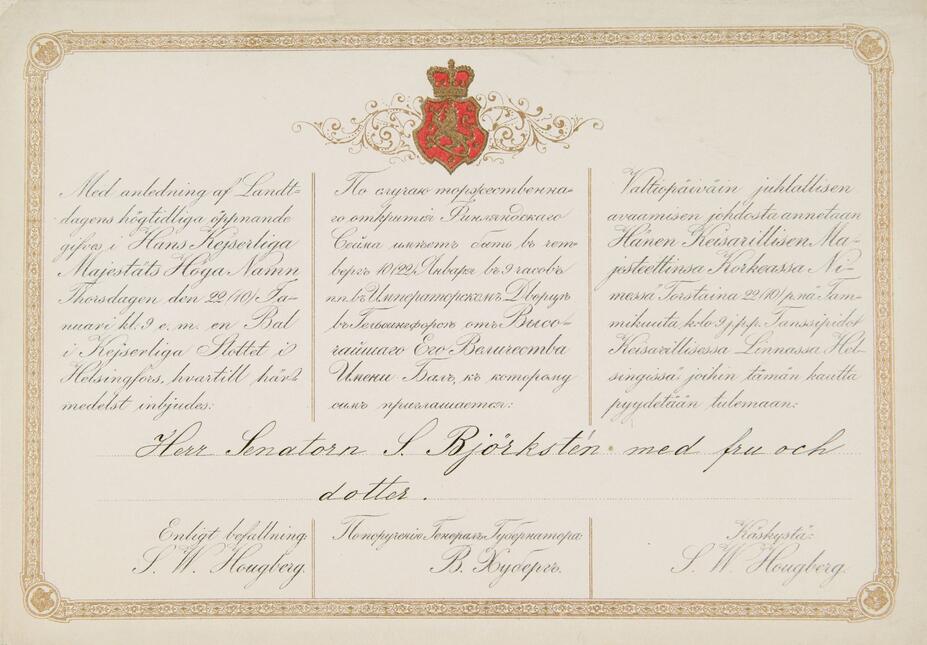 Med anledning af Landt-
dagens högtidliga öppnande
gifves i Hans Kejserliga
Majestäts Höga Namn
Thorsdagen den 22/(10)/ Ja-
nuari kl. 9 e. m. en Bal
i Kejserliga Slottet i
Helsingfors, hvartill här-
medelst inbjudes:
По случаю торжественна-
го открытія Финляндскаго
Сейма имѣетъ быть въ чет-
вергъ 10/22/ Января въ 9 часовъ
пп. въ Императорскомъ Дворцѣ
въ Гельсингфорсѣ отъ Высо-
чайшаго Его Величества
Имени Балъ, къ которому
симъ приглашается:
Valtiopäiväin juhlallisen
avaamisen johdosta annetaan
Hänen Keisarillisen Ma-
jesteettinsa Korkeassa Ni-
messä Torstaina 22/(10)/ p:nä Tam-
mikuuta, k:lo 9 j.p.p. Tanssipidot
Keisarillisessa Linnassa Hel-
singissä joihin tämän kautta
pyydetään tulemaan:
Herr Senatorn S. Björkstén med fru och
dotter.
Enligt befallning:
S. W. Hougberg.
По порученію Генералъ Губернатора:
В. Хубергъ.
Käskystä:
S. W. Hougberg.